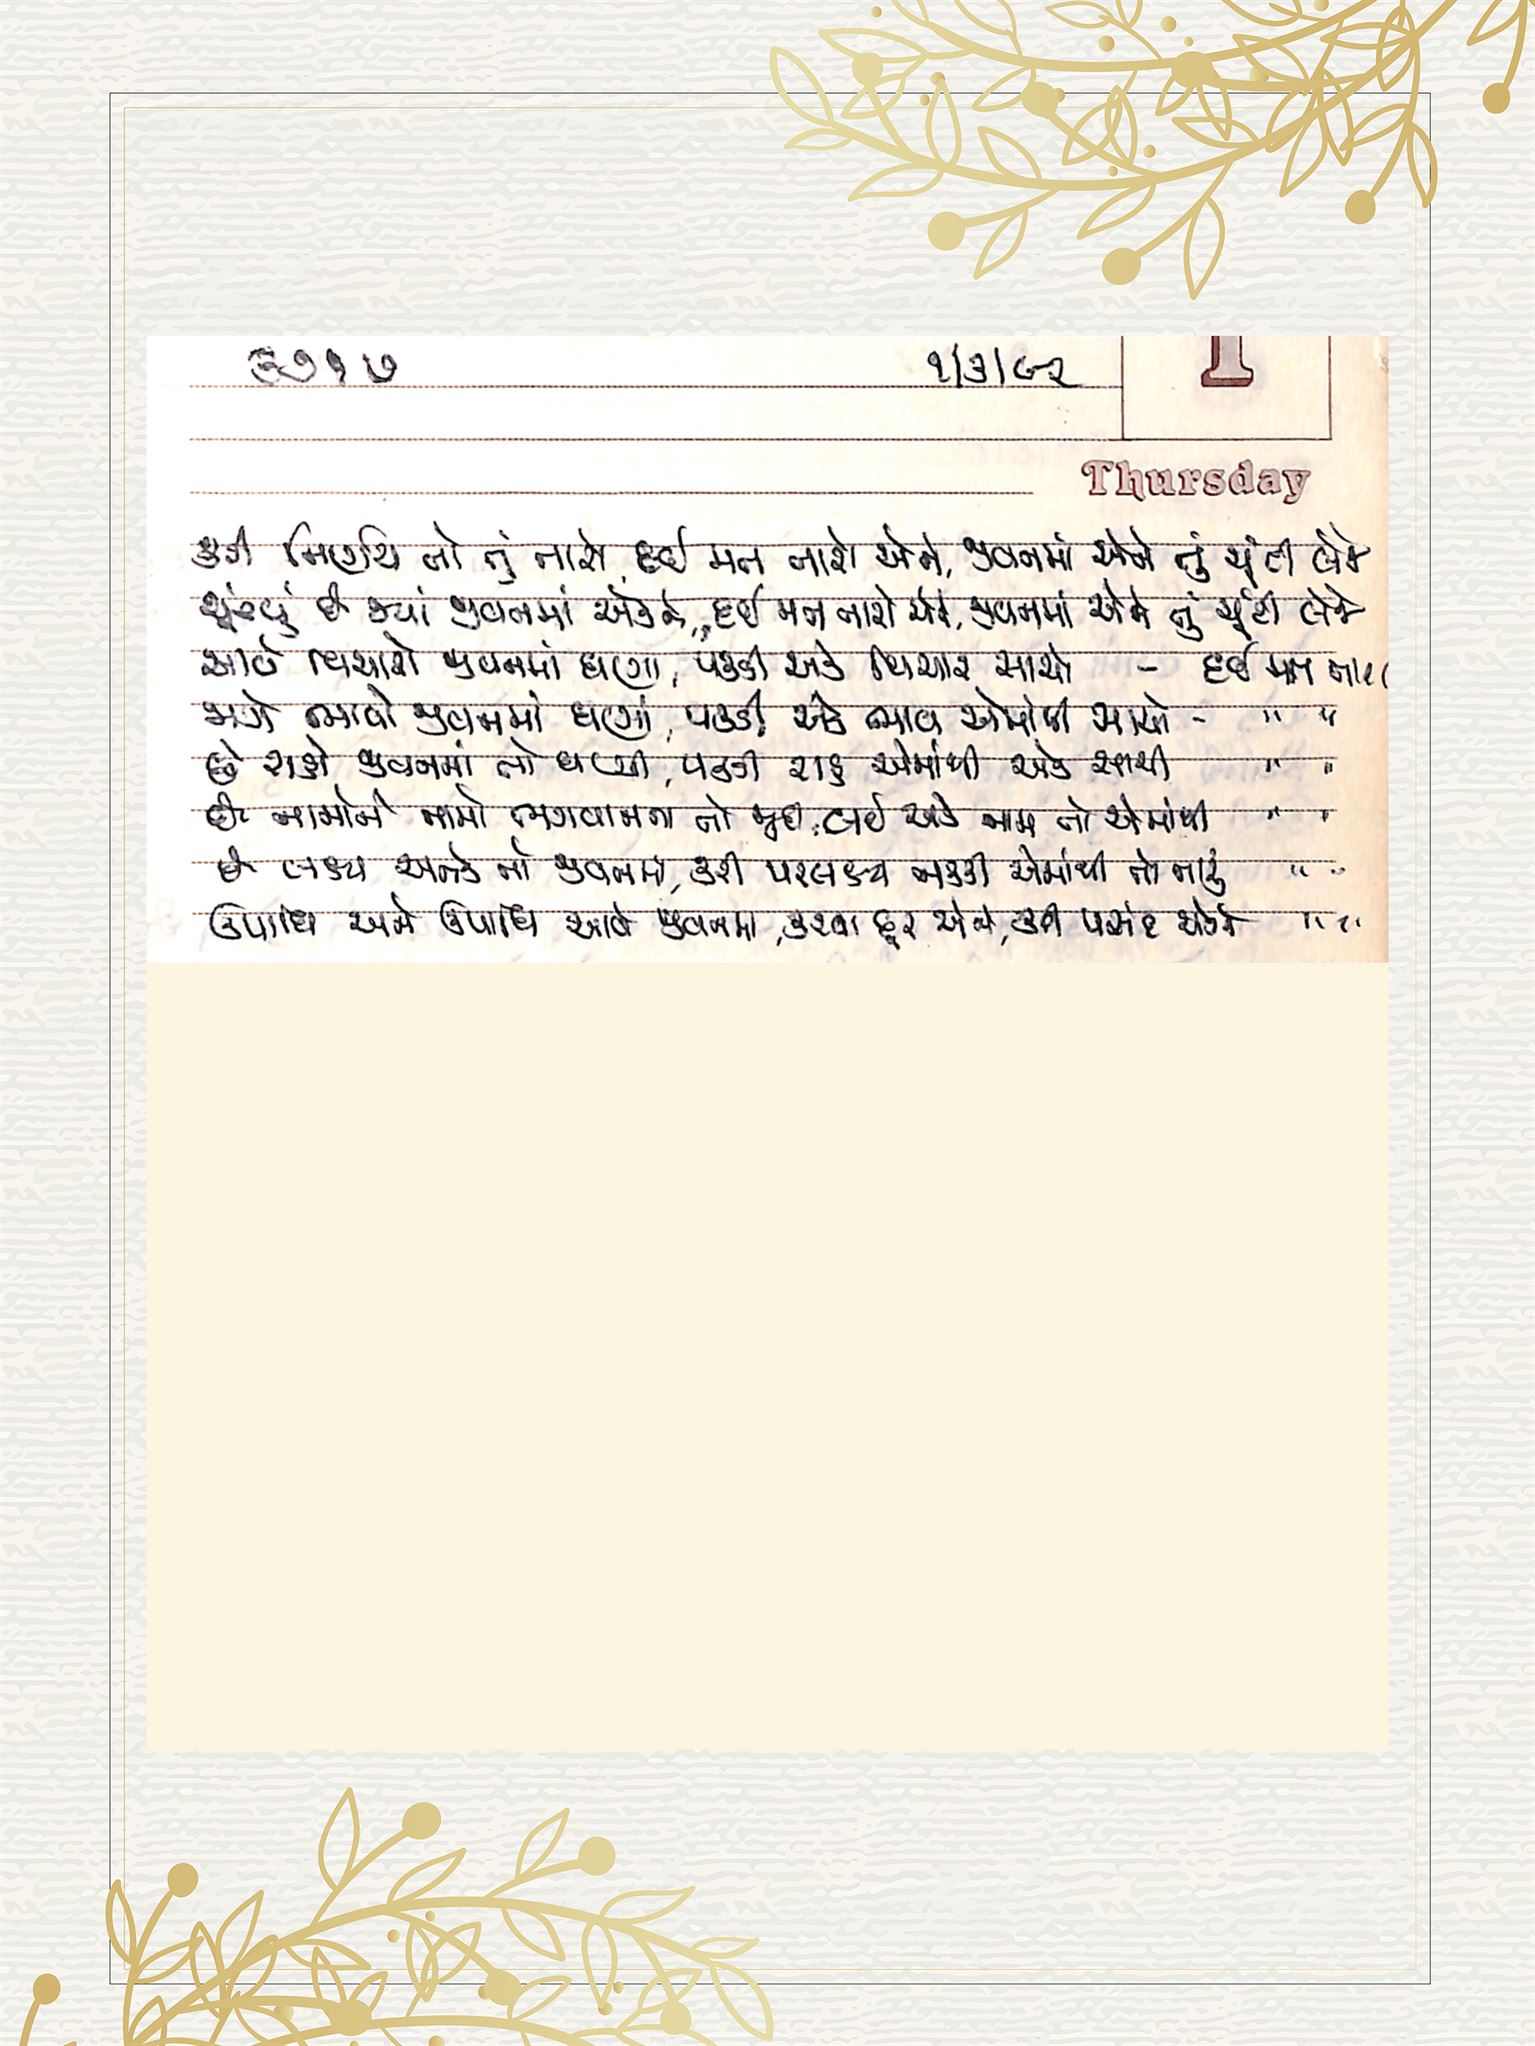 ૩૭૧૭ ૧/૩/૯૨
1
Thursday
કરી નિર્ણય તો તું નાચે, દઈ મન નાચે એને, જીવનમાં એને તું ચૂંટી લેજે
ચૂંટયું છે ક્યાં જીવનમાં એકને, દઈ મન નાચે એને, જીવનમાં એને તું ચૂંટી લેજે
આવે વિચારો જીવનમાં ઘણા, પકડી એક વિચાર સાચો - દઈ મન
જાગે ભાવો જીવનમાં ઘણાં, પકડી એક ભાવ એમાંથી સાચો - " "
છે રાહો જીવનમાં તો ઘણી, પકડી રાહ એમાંથી એક સાચી " "
છે નામોને નામો ભગવાનના તો જૂદા, લઈ એક નામ તો એમાંથી " "
છે લક્ષ્ય અનેક તો જીવનમાં, કરી લક્ષ્ય નક્કી એમાંથી તો તારું " "
ઉપાધિ અને ઉપાધિ આવે જીવનમાં, કરવા દૂર એને, કરી પસંદ એકને " "